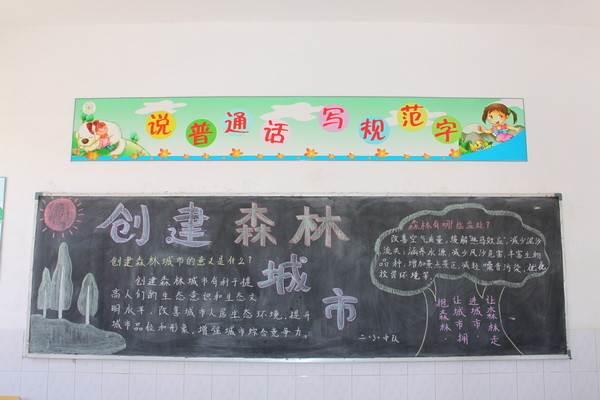 说普通话 写规范字
创建森林
城
市
创建森林城市的意义是什么？
创建森林城市有利于提
高人们的生态意识和生态文
明水平，改善城市人居生态环境，提升
城市品位和形象，增强城市综合竞争力。
森林有哪些益处？
改善空气质量，缓解"热岛效应"，减少泥沙
流失，涵养水源，减少风沙危害，丰富生物
品种，增加景点景区，减轻噪音污染，优化
投资环境等。
让森林走
进城市，
让城市拥
抱森林。
二.3.中队